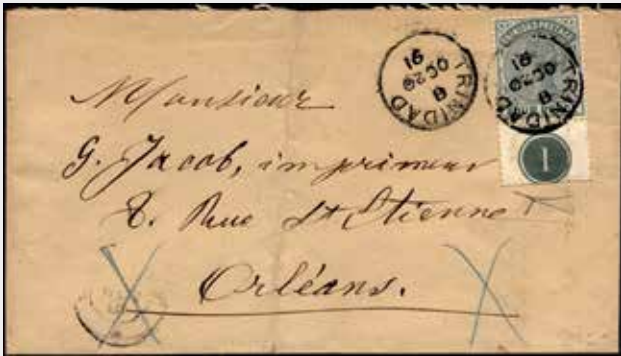 TRINIDAD
B
OC 29
91
TRINIDAD
B
OC 29
91
1
Monsieur
G. Jacob, imprimeur
8. Rue St Etienne
Orléans.